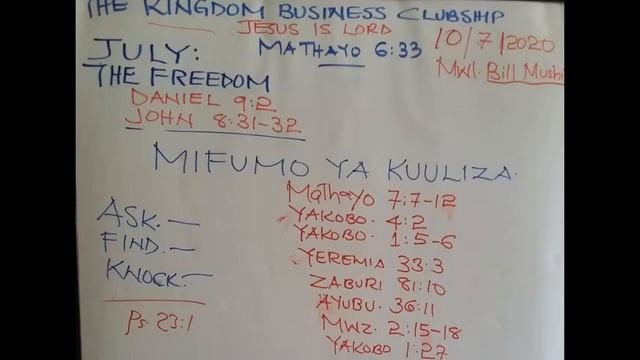 THE KINGDOM BUSINESS CLUBSHIP
JESUS IS LORD
JULY: MATHAYO 6:33 10/7/2020
THE FREEDOM Mwl. Bill Mushi
DANIEL 9:2
JOHN 8:31-32
MIFUMO YA KUULIZA.
Mathayo 7:7-12
ASK. — YAKOBO. 4:2
FIND. — YAKOBO. 1:5-6
KNOCK: — YEREMIA 33:3
ZABURI 81:10
Ps. 23:1 AYUBU. 36:11
MWZ. 2:15-18
YAKOBO 1:27